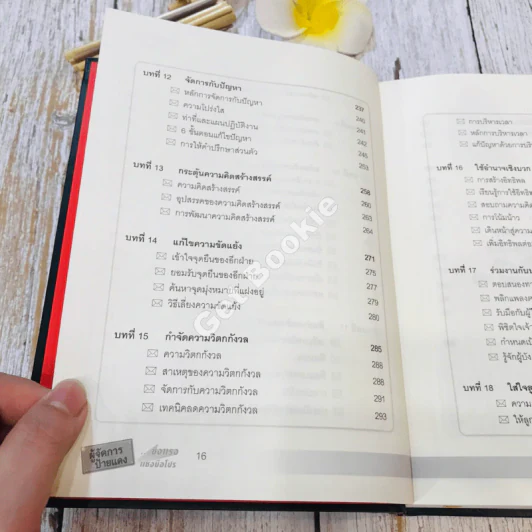 บทที่ 12 จัดการกับปัญหา 237
หลักการจัดการกับปัญหา 240
ความโปร่งใส 241
ท่าทีและแผนปฏิบัติงาน 242
6 ขั้นตอนแก้ไขปัญหา 245
การให้คำปรึกษาส่วนตัว 253
บทที่ 13 กระตุ้นความคิดสร้างสรรค์ 258
ความคิดสร้างสรรค์ 260
อุปสรรคของความคิดสร้างสรรค์ 263
การพัฒนาความคิดสร้างสรรค์ 264
บทที่ 14 แก้ไขความขัดแย้ง 271
เข้าใจจุดยืนของอีกฝ่าย 275
ยอมรับจุดยืนของอีกฝ่าย 277
ค้นหาจุดมุ่งหมายที่แฝงอยู่ 279
วิธีเลี่ยงความขัดแย้ง 280
บทที่ 15 กำจัดความวิตกกังวล 285
ความวิตกกังวล 288
สาเหตุของความวิตกกังวล 288
จัดการกับความวิตกกังวล 291
เทคนิคลดความวิตกกังวล 293
ผู้จัดการป้ายแดง
16
การบริหารเวลา
หลักการบริหารเวลา
แก้ปัญหาด้วยการบริ
บทที่ 16 ใช้อำนาจเชิงบวก
การสร้างอิทธิพล
เรียนรู้การใช้อิทธิพ
สอบถามความคิด
การโน้มน้าว
เดินหน้าสู่ความ
เติมอิทธิพลต่อ
บทที่ 17 ร่วมงานกับบ
ตอบสนองทา
พลิกแพลง
รับมือกับผู้
พิชิตใจเจ้า
กำหนดเป้
รู้จักผู้บัง
บทที่ 18 ใส่ใจลู
ความ
ให้ลูก
Get Bookie